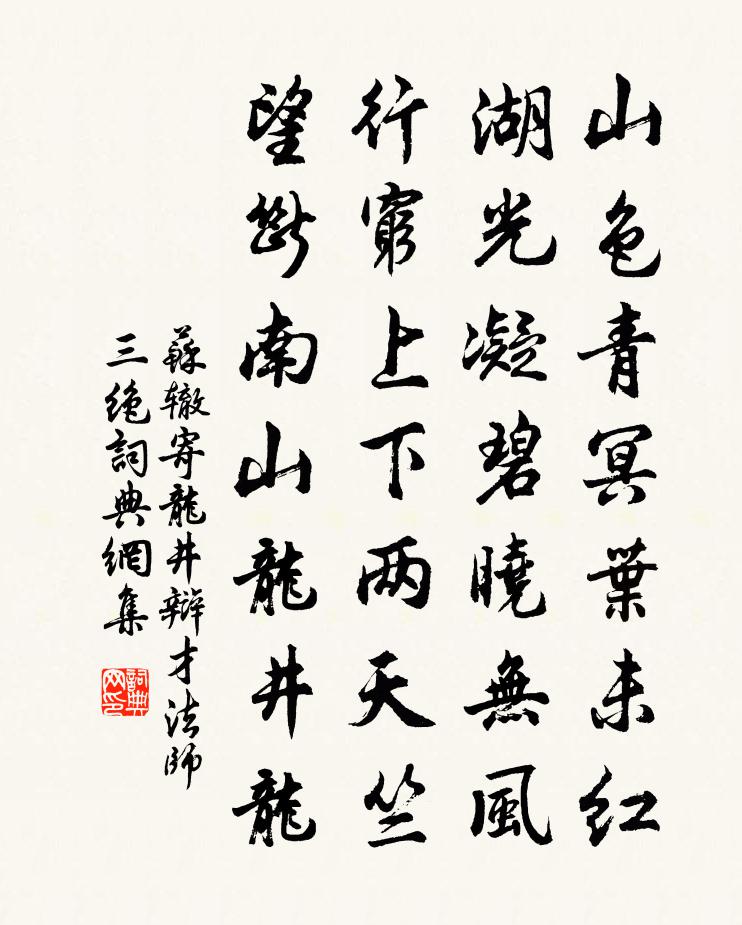 山色青冥葉未红
湖光凝碧曉無風
行窮上下两天竺
望斷南山龍井龍
蘇辙寄龍井辯才法師
三绝詞典網集
詞典网印